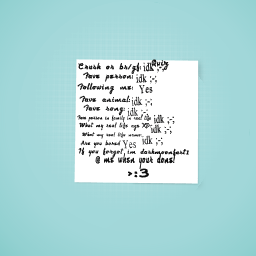 Quiz
Crush or bf/gf: idk ;-;
Fave person: idk ;-;
Following me: Yes
Fave animal: idk ;-;
Fave song: idk ;-;
Fave person in family in real life idk ;-;
What my real life age XD: idk ;-;
What my real life name: idk ;-;
Are you bored Yes
If you forgot, im darkmoonfart2
@ me when your done!
>:3